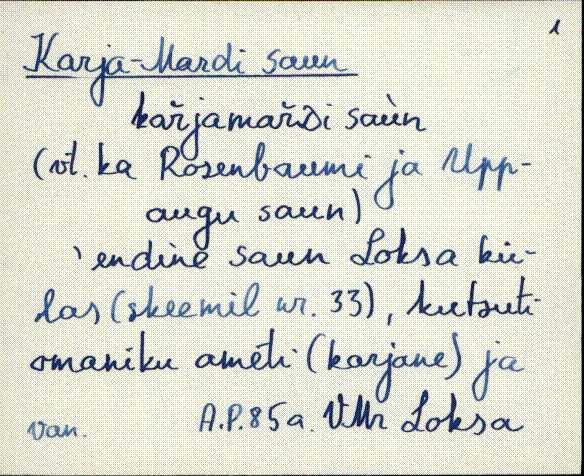 1
Karja-Mardi saun
kařjamařDi saùn
(vt. ka Rosenbaumi ja Upp-
augu saun)
'endine saun Loksa kü-
las (skeemil nr. 33), kutsuti
omaniku ameti (karjane) ja
van. A.P. 85 a. VMr Loksa